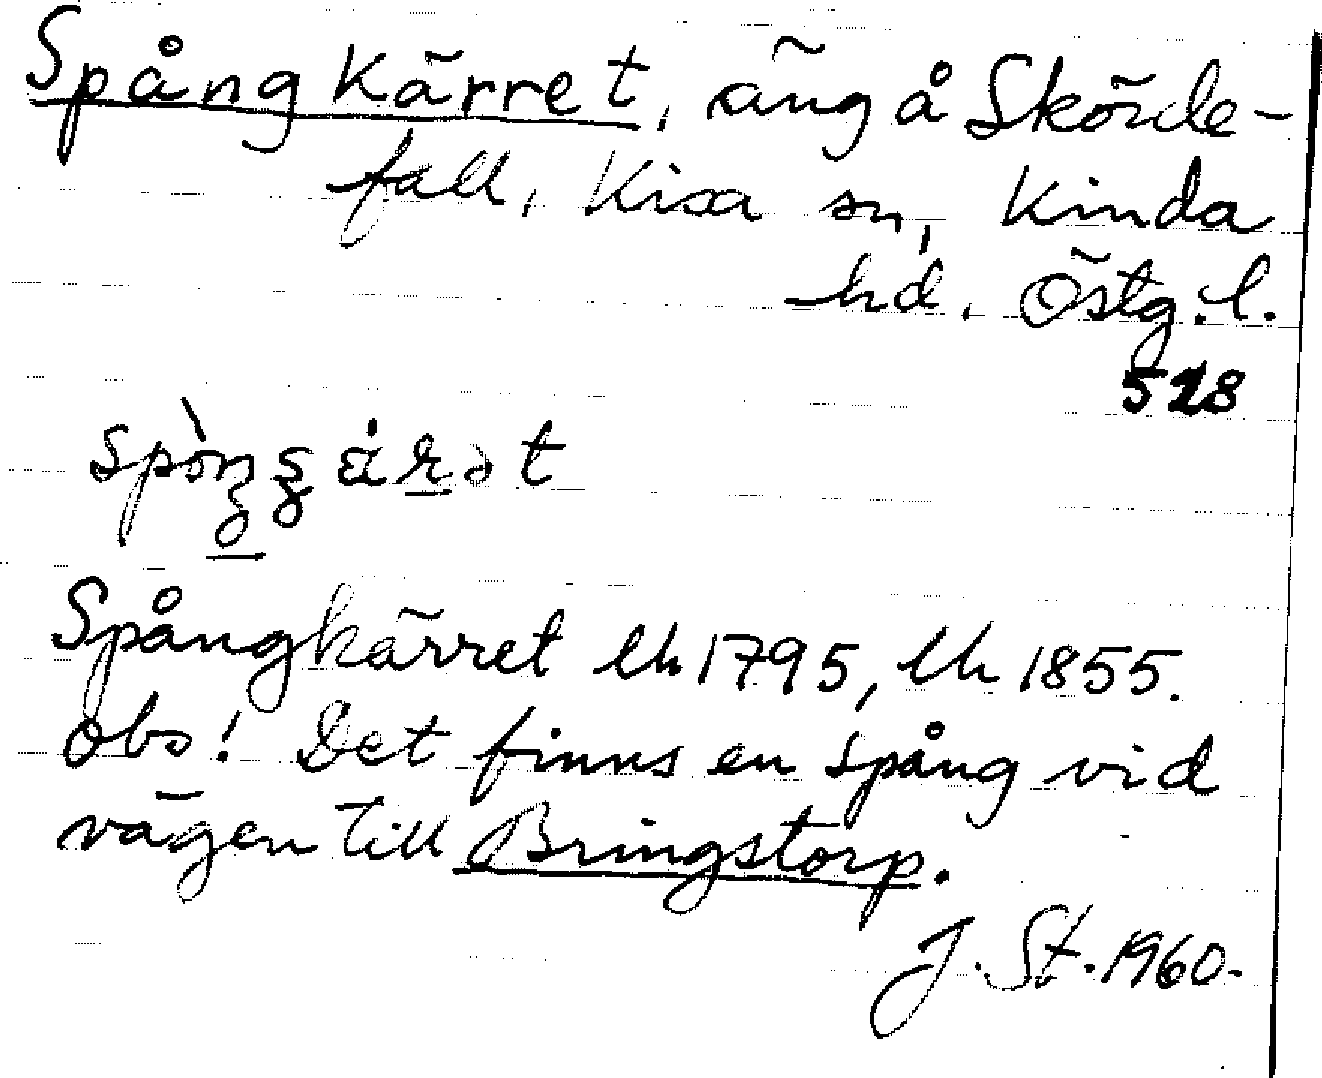 Spångkärret, äng å Skörde-
fall, Kisa sn, Kinda
hd, Östg. l.
528
Spångkärret lh 1795, lh 1855.
Obs! Det finns en spång vid
vägen till Bringstorp.
J. St. 1960.